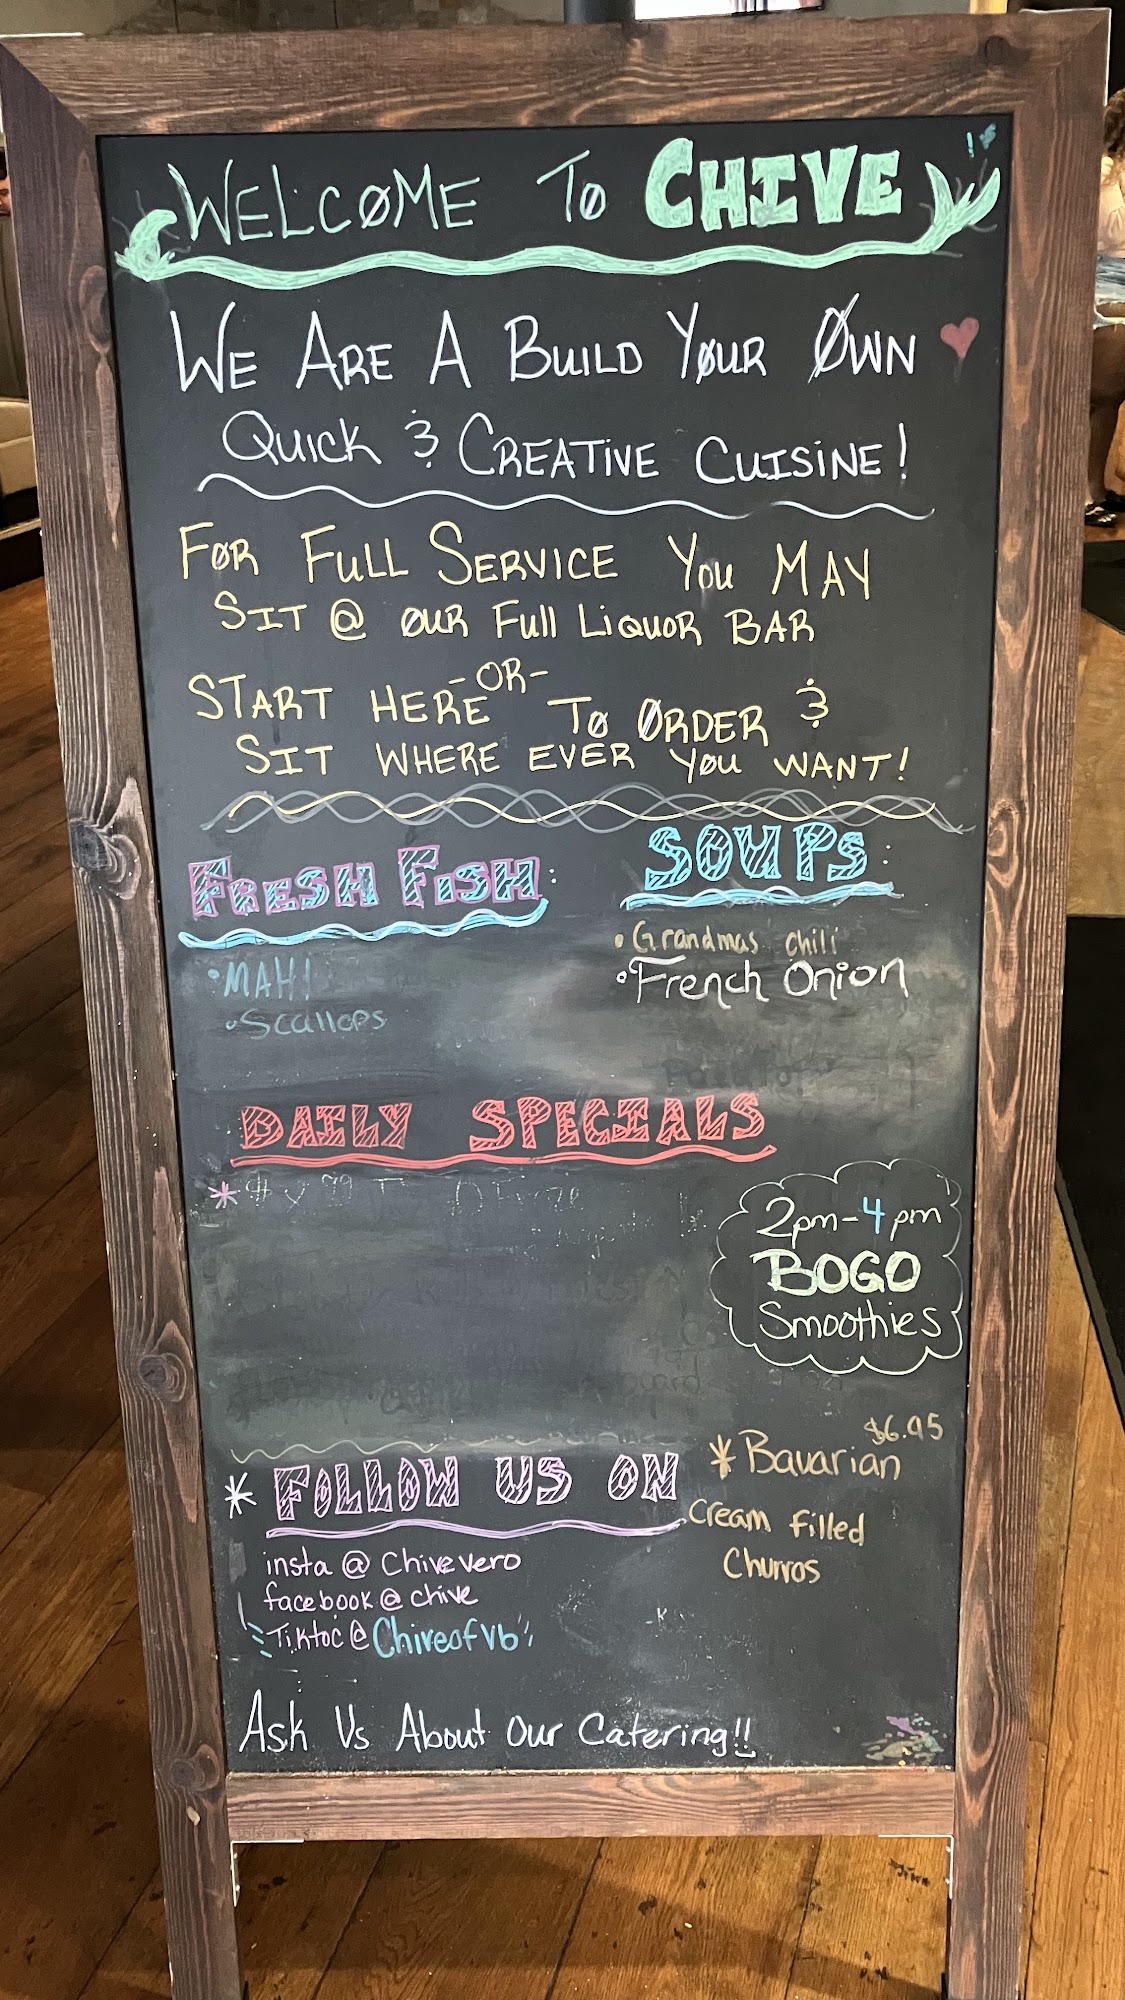 WELCOME TO CHIVE
WE ARE A BUILD YOUR OWN
QUICK & CREATIVE CUISINE!
FOR FULL SERVICE YOU MAY
SIT @ OUR Full LIQUOR BAR
-OR-
START HERE TO ORDER &
SIT WHERE EVER YOU WANT!
FRESH FISH:
• MAHI
• Scallops
SOUPS:
• Grandmas chili
• French Onion
DAILY SPECIALS
*
2pm-4pm
BOGO
Smoothies
$6.95
* Bavarian
cream filled
Churros
* FOLLOW US ON
insta @ Chivevero
facebook @ chive
Tiktoc @ Chiveofvb
Ask Us About Our Catering!!